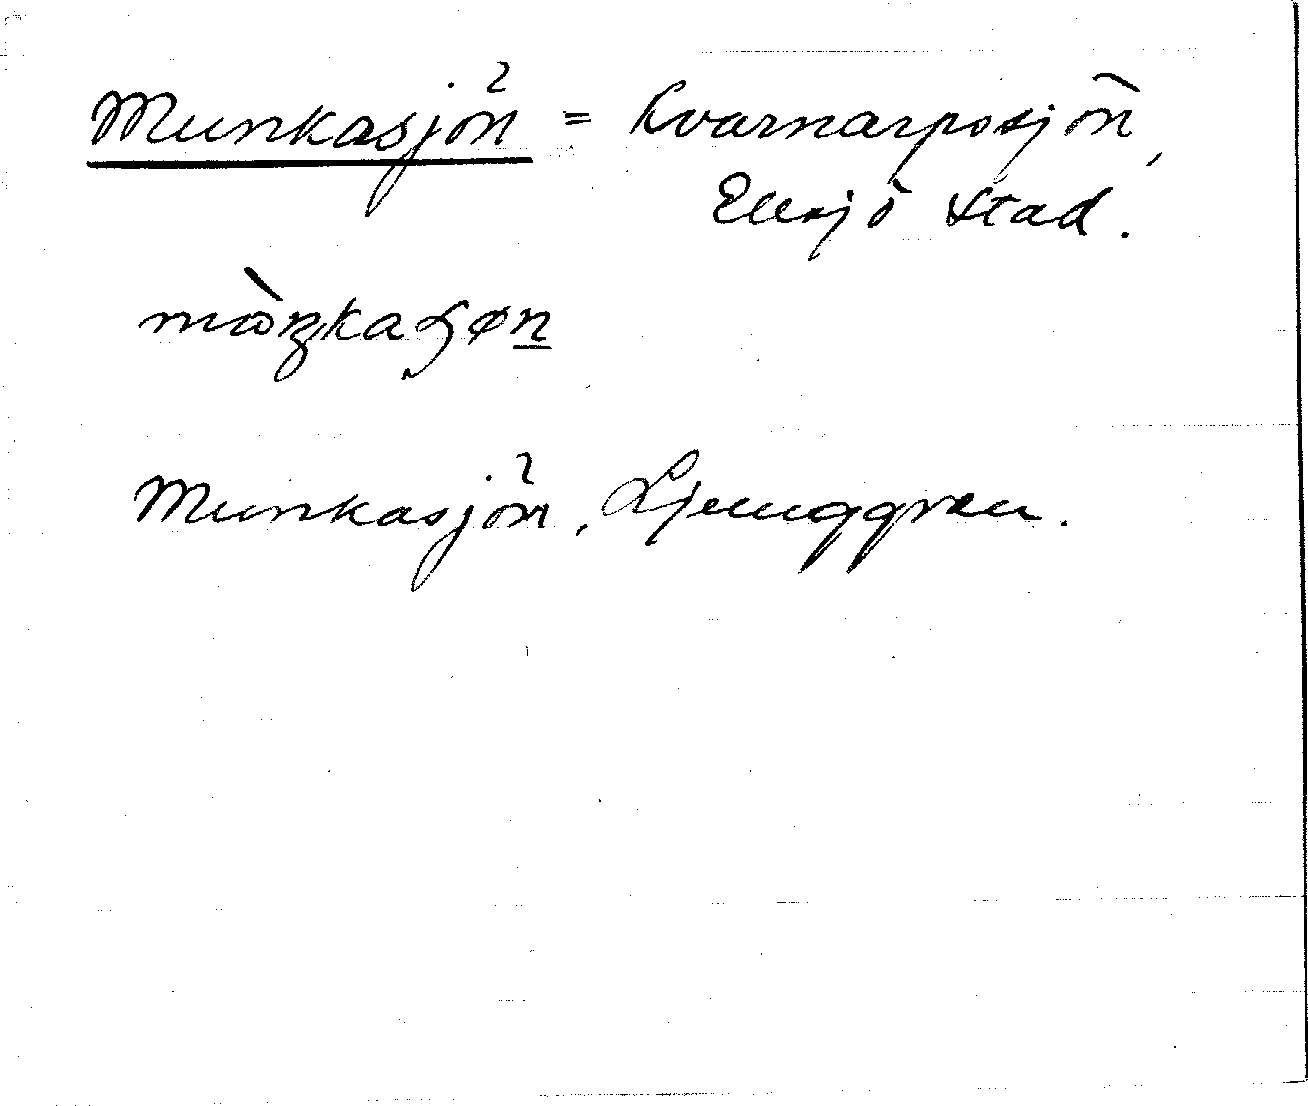 Munkasjön = Kvarnarpssjön,
Eksjö stad.
mὼŋkaʃøn
Munkasjön, Ljunggren.